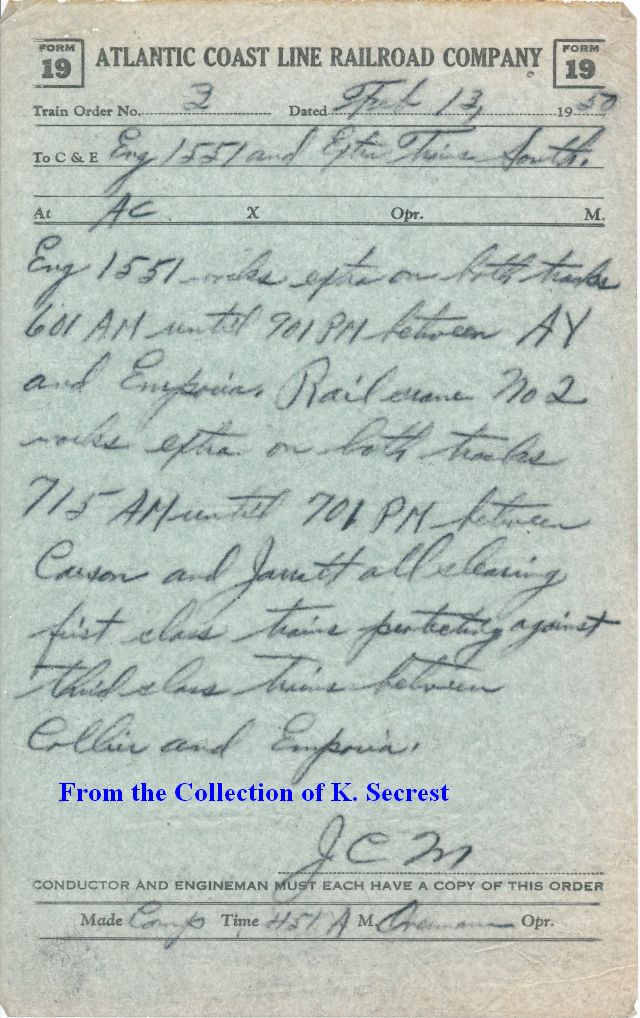 FORM 19 ATLANTIC COAST LINE RAILROAD COMPANY FORM 19
Train Order No. 2 Dated Feb 13, 1950
To C & E Eng 1551 and Extra Trains South.
At AC X Opr. M.
Eng 1551 works extra on both tracks
601 AM until 901 PM between AY
and Emporia. Rail crane No 2
works extra on both tracks
715 AM until 701 PM between
Carson and Jarratt all clearing
first class trains protecting against
third class trains between
Collier and Emporia.
From the Collection of K. Secrest
J C M
CONDUCTOR AND ENGINEMAN MUST EACH HAVE A COPY OF THIS ORDER
Made Comp Time 451 A M. Opr.